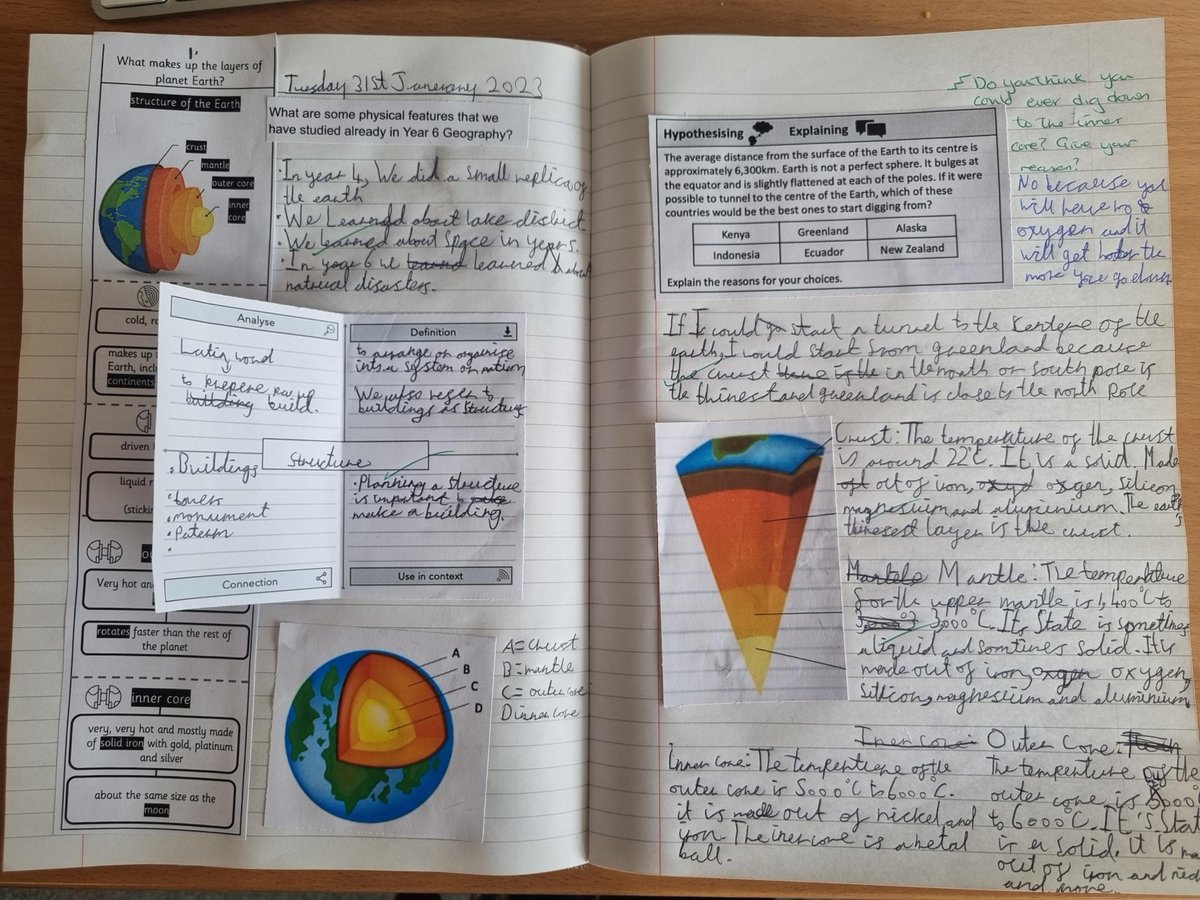 1.
What makes up the layers of
planet Earth?
structure of the Earth
crust
mantle
outer core
inner
core
cold, ro
makes up
Earth, incl
continents
driven
liquid r
(stickin
ou
Very hot an
rotates faster than the rest of
the planet
inner core
very, very hot and mostly made
of solid iron with gold, platinum
and silver
about the same size as the
moon
Tuesday 31st Janerary 2023
What are some physical features that we
have studied already in Year 6 Geography?
• In year 4, We did a small replica of
the earth
• We Learned about lake district.
• We learned about Space in year 5.
• In year 6 we learned about
natrual disasters.
Analyse
Latin word
to prepere
building build.
Definition
to arrange or organise
into a system or
We also refer to
buildings as structure
Structure
• Buildings
• towers
• monument
• Paterm
•
Connection
• Planning a structure
is important to make
make a building.
Use in context
A
B
C
D
A = Crust
B = mantle
C = outer core
D inner core
Do you think you
could ever dig down
to the inner
core? Give your
reason?
No because you
will have no
oxygen and it
will get hoter the
more you go down
Hypothesising Explaining
The average distance from the surface of the Earth to its centre is
approximately 6,300km. Earth is not a perfect sphere. It bulges at
the equator and is slightly flattened at each of the poles. If it were
possible to tunnel to the centre of the Earth, which of these
countries would be the best ones to start digging from?
Kenya Greenland Alaska
Indonesia Ecuador New Zealand
Explain the reasons for your choices.
If I could start a tunnel to the centere of the
earth, I would start from greenland because
the crust in the north or south pole is
the thinest and greenland is close to the north Pole
Crust: The temperature of the crust
is around 22°C. It is a solid. Made
out of iron, oxyger, silicon
magnesium and aluminium. The earth's
thinesest layer is the crust.
Mantele Mantle: The temperature
for the upper mantle is 1,400°C to
3000°C. Its State is sometimes
a liquid and somtines solid. It is
made out of iron, oxgen oxygen,
sillicon, magnesium and aluminium.
Iner core: Outer Core:
Inner core: The temperture of the
outer core is 5000°C to 6000°C.
it is made out of nickel and
iron. The iner core is a metal
ball.
The temperture of the
outer core is 5000°
to 6000°C. It's State
is a solid. it is ma
out of iron and nic
and more.